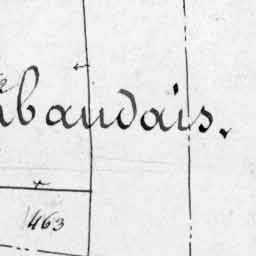 baudais.
463